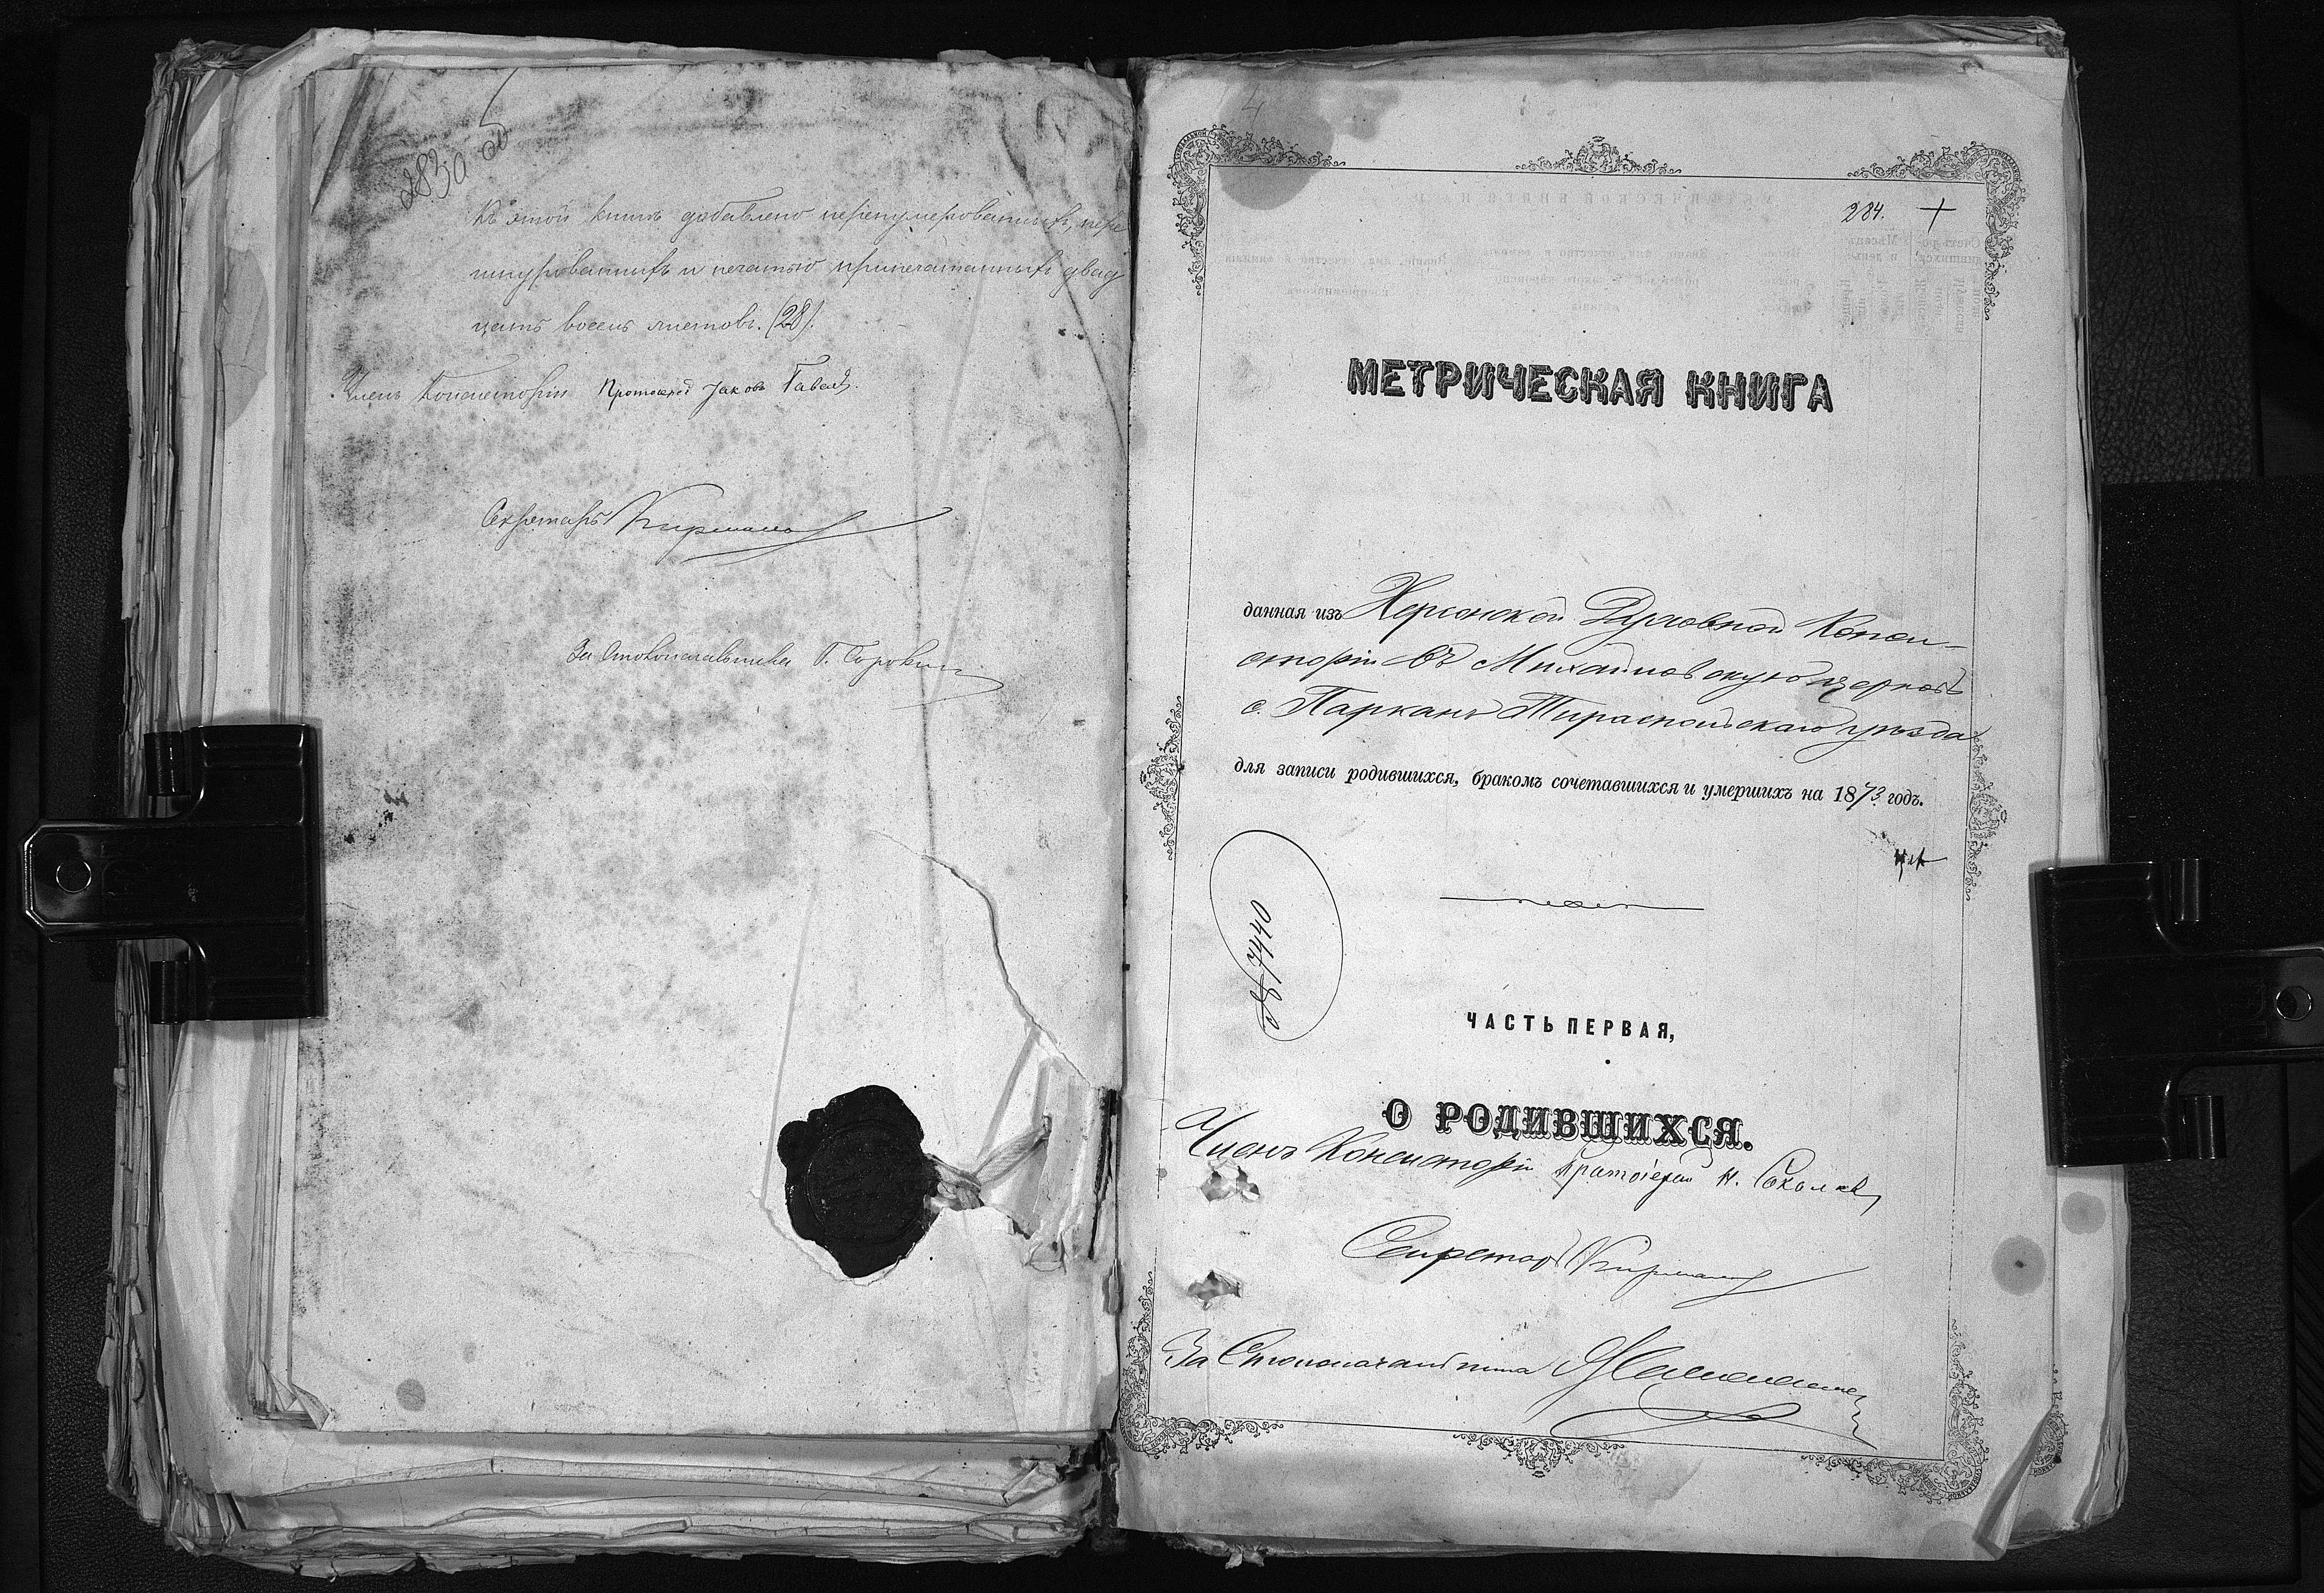 283 об
Къ этой книгѣ добавлено перенумерованныхъ, пере
шнурованныхъ и печатью припечатанныхъ двад
цать восемь листовъ. (28).
Членъ Консисторіи Протоіерей Іаковъ
Секретарь
За Столоначальника
4
284.
МЕТРИЧЕСКАЯ КНИГА
данная изъ Херсонской Духовной Конси-
сторіи въ Михайловскую церковь
с. Паркань Тираспольскаго уѣзда
для записи родившихся, бракомъ сочетавшихся и умершихъ на 1873 годъ.
№ 7440
ЧАСТЬ ПЕРВАЯ,
О РОДИВШИХСЯ.
Членъ Консисторіи Протоіерей Н. Соколов
Секретарь
За Столоначальника